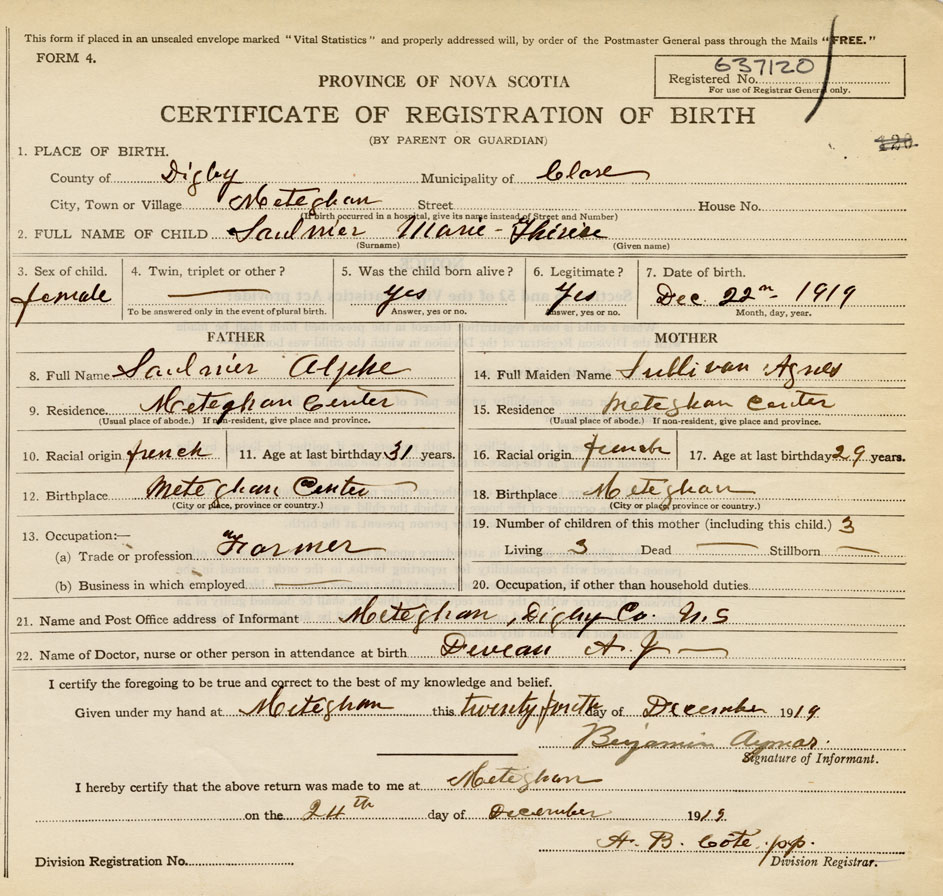 This form if placed in an unsealed envelope marked "Vital Statistics" and properly addressed will, by order of the Postmaster General pass through the Mails "FREE."
FORM 4.
637120
Registered No.
For use of Registrar General only.
PROVINCE OF NOVA SCOTIA
CERTIFICATE OF REGISTRATION OF BIRTH
(BY PARENT OR GUARDIAN)
120
1. PLACE OF BIRTH.
County of Digby Municipality of Clare
City, Town or Village Meteghan Street House No.
(If birth occurred in a hospital, give its name instead of Street and Number)
2. FULL NAME OF CHILD Saulnier Marie-Thérèse
(Surname) (Given name)
3. Sex of child. 4. Twin, triplet or other? 5. Was the child born alive? 6. Legitimate? 7. Date of birth.
female — Yes Yes Dec. 22nd 1919
To be answered only in the event of plural birth. Answer, yes or no. Answer, yes or no. Month, day, year.
FATHER MOTHER
8. Full Name Saulnier Alphe 14. Full Maiden Name Sullivan Agnes
9. Residence. Meteghan Center 15. Residence Meteghan Center
(Usual place of abode.) If non-resident, give place and province. (Usual place of abode.) If non-resident, give place and province.
10. Racial origin french 11. Age at last birthday 31 years. 16. Racial origin french 17. Age at last birthday 29 years.
12. Birthplace Meteghan Center 18. Birthplace Meteghan
(City or place, province or country.) (City or place, province or country.)
13. Occupation:— 19. Number of children of this mother (including this child.) 3
(a) Trade or profession Farmer Living 3 Dead — Stillborn —
(b) Business in which employed — 20. Occupation, if other than household duties
21. Name and Post Office address of Informant Meteghan, Digby Co. N.S
22. Name of Doctor, nurse or other person in attendance at birth Deveau A. J
I certify the foregoing to be true and correct to the best of my knowledge and belief.
Given under my hand at Meteghan this twenty fourth day of December 1919
Benjamin Aymar.
Signature of Informant.
I hereby certify that the above return was made to me at Meteghan
on the 24th day of December 1919
A. B. Cote. pp.
Division Registration No. Division Registrar.